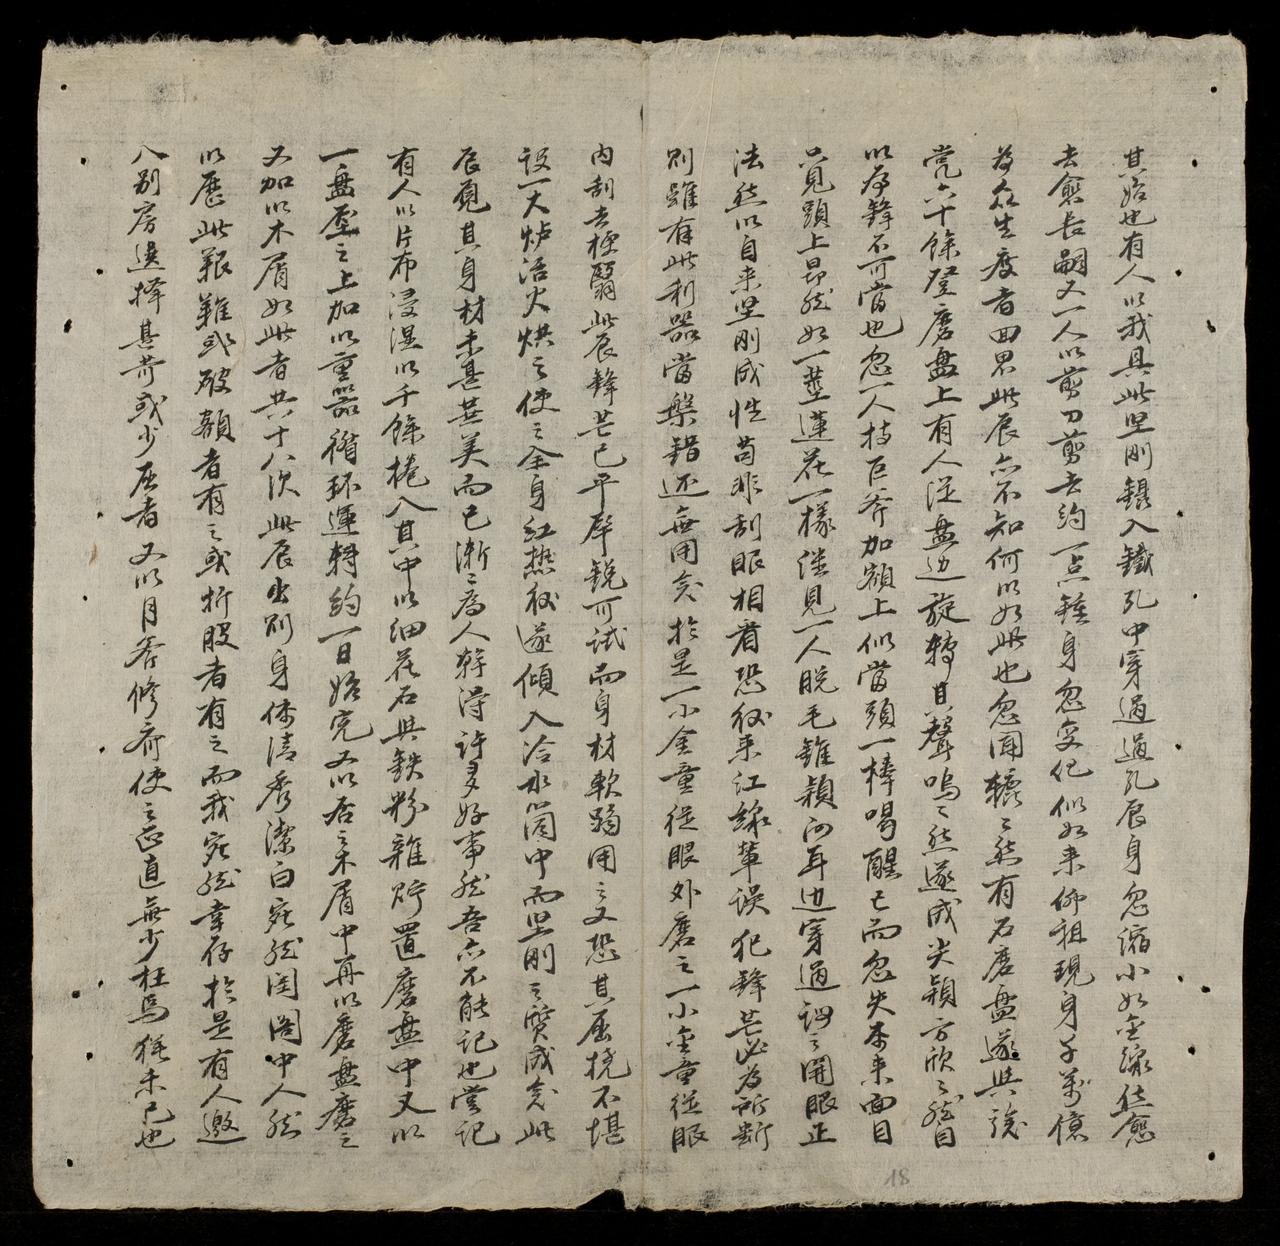 其始也有人以我具此坚刚鑷入鐵孔中穿過過孔辰身忽縮小如金線然愈
去愈長嗣又一人以剪刀剪去約一点鍾身忽变化似如来佛祖現身千萬億
為众生度者回思此辰亦不知何以如此也忽闻轆〻然有石磨盤遂與議
党六十餘登磨盤上有人従盤边旋轉其聲嗚〻然遂成尖穎方欣〻然自
以為鋒不可當也忽一人持巨斧加额上似當頭一棒喝醒已而忽失本来面目
只見頭上昂然如一莖蓮花一樣継見一人脱毛錐穎向耳边穿過謂之開眼正
法然以自来坚刚成性苟非刮眼相看恐後来江線輩误犯鋒芒必為所断
則雖有此利器當槃錯还無用矣於是一小金童従眼外磨之一小金童従眼
内刮去梗翳此辰鋒芒已平犀銳可試而身材軟弱用之又恐其屈撓不堪
設一大炉活火烘之使之全身红热後遂傾入冷水筒中而坚刚之質成矣此
辰覔其身材未甚美而已漸〻為人幹得許多好事然吾亦不能記也嘗記
有人以片布浸湿以千餘捲入其中以细花石與鉄粉雜貯置磨盘中又以
一盘壓之上加以重器循环運轉約一日始完又以居之木屑中再以磨盘磨之
又加以木屑如此者共十八次此辰出則身体清秀潔白宛然闺阁中人然
以歷此艱難或破額者有之或折股者有之而我宛然幸存於是有人邀
入别房選擇甚苛或少屈者又以月斧修齐使之正直無少枉焉犹未已也
18